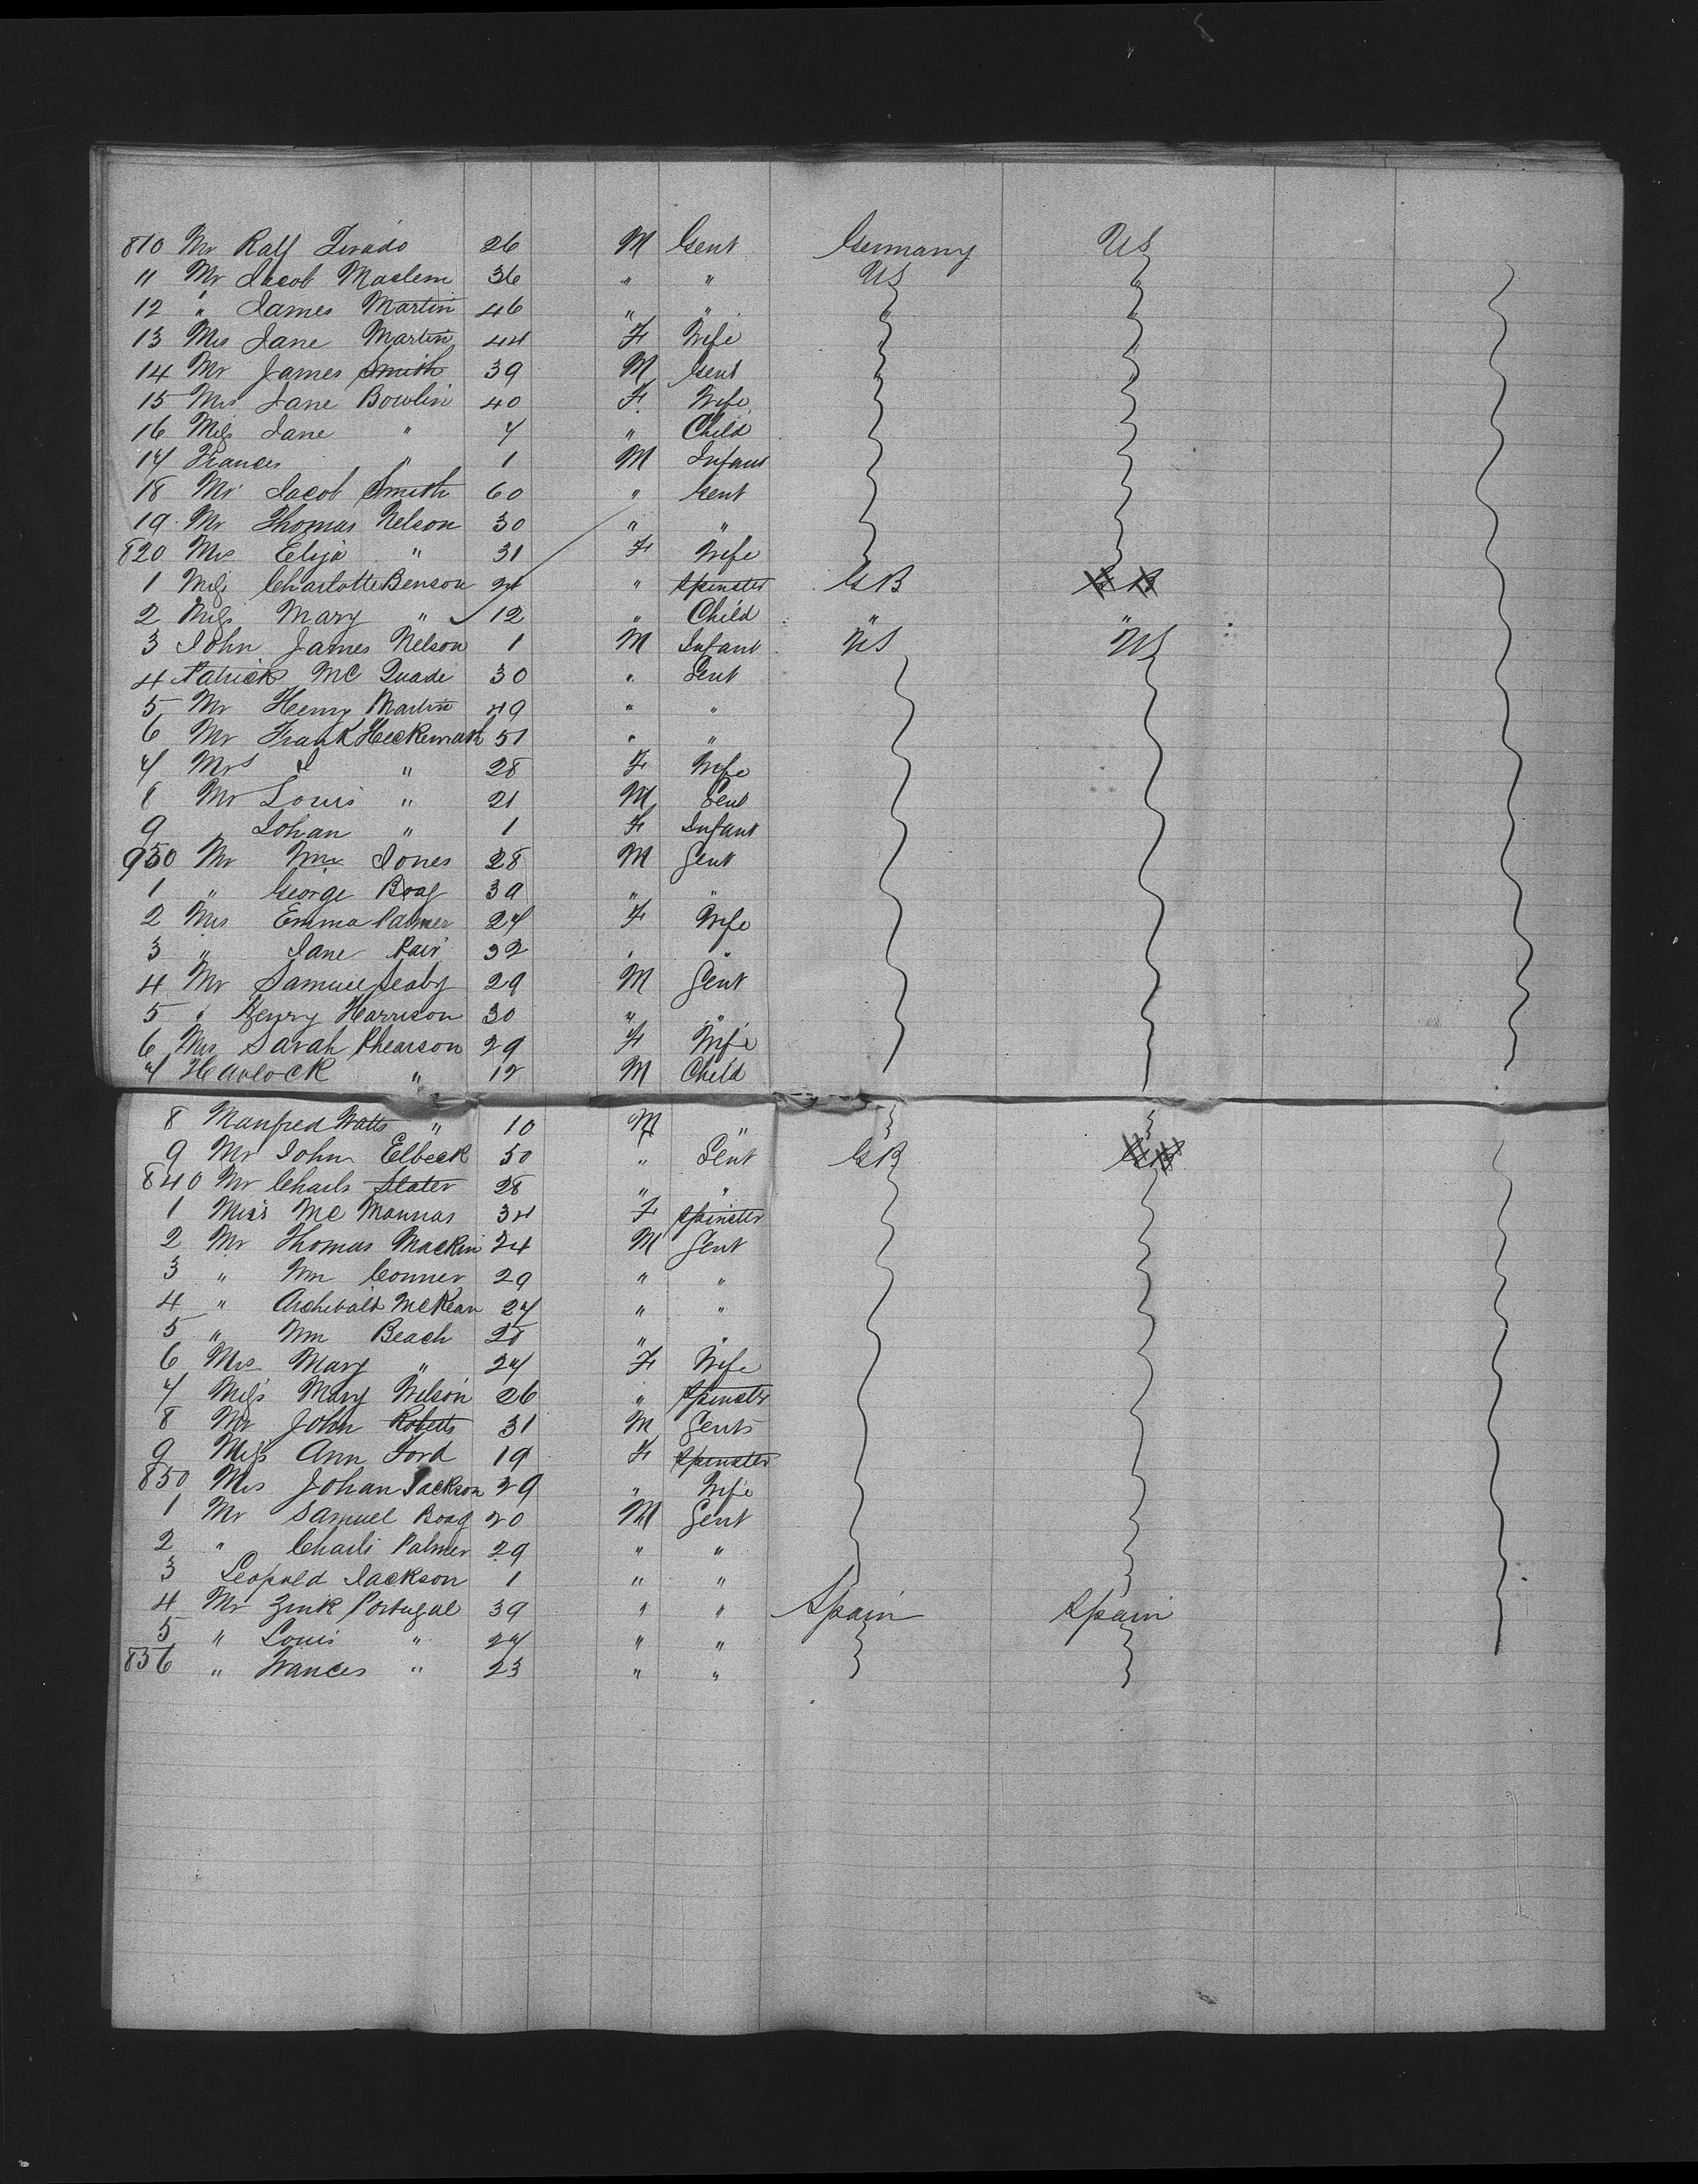 810 Mr Ralf Tirado 26 M Gent Germany US
11 Mr Jacob Maslem 36 " " US "
12 " James Martin 46 " " " "
13 Mrs Jane Martin 44 F Wife
14 Mr James Smith 39 M Gent
15 Mrs Jane Bowlin 40 F Wife
16 Miss Jane " 7 " Child
17 Frances " 1 M Infant
18 Mr Jacob Smith 60 " Gent
19 Mr Thomas Nelson 30 " "
820 Mrs Eliza " 31 F Wife
1 Miss Charlotte Benson 21 " Spinster GB
2 Miss Mary " 12 " Child " "
3 John James Nelson 1 M Infant US US
4 Patrick Mc Quade 30 " Gent
5 Mr Henry Martin 49 " "
6 Mr Frank Heckenrath 51 " "
7 Mrs J " 28 F Wife
8 Mr Louis " 21 M Gent
9 Johan " 1 F Infant
930 Mr Wm Jones 28 M Gent
1 " George Boag 39 " "
2 Mrs Emma Palmer 27 F Wife
3 " Jane Pair 32 " "
4 Mr Samuel Seaby 29 M Gent
5 " Henry Harrison 30 " "
6 Mrs Sarah Phearson 29 F Wife
7 Havlock " 12 M Child
8 Manfred Watts " 10 M "
9 Mr John Elbeck 50 " Gent GB GB
840 Mr Charls Slater 28 " "
1 Miss Mc Mannas 34 F Spinster
2 Mr Thomas Mackin 24 M Gent
3 " Wm Conner 29 " "
4 " Archibald McKean 27 " "
5 " Wm Beach 28 " "
6 Mrs Mary " 27 F Wife
7 Miss Mary Wilson 26 " Spinstr
8 Mr John Roberts 31 M Gents
9 Miss Ann Ford 19 F Spinster
850 Mrs Johan Jackson 29 " Wife
1 Mr Samuel Boag 20 M Gent
2 " Charls Palmer 29 " "
3 Leopold Jackson 1 " "
4 Mr Zink Portugal 39 " " Spain Spain
5 " Louis " 27 " "
856 " Frances " 23 " "